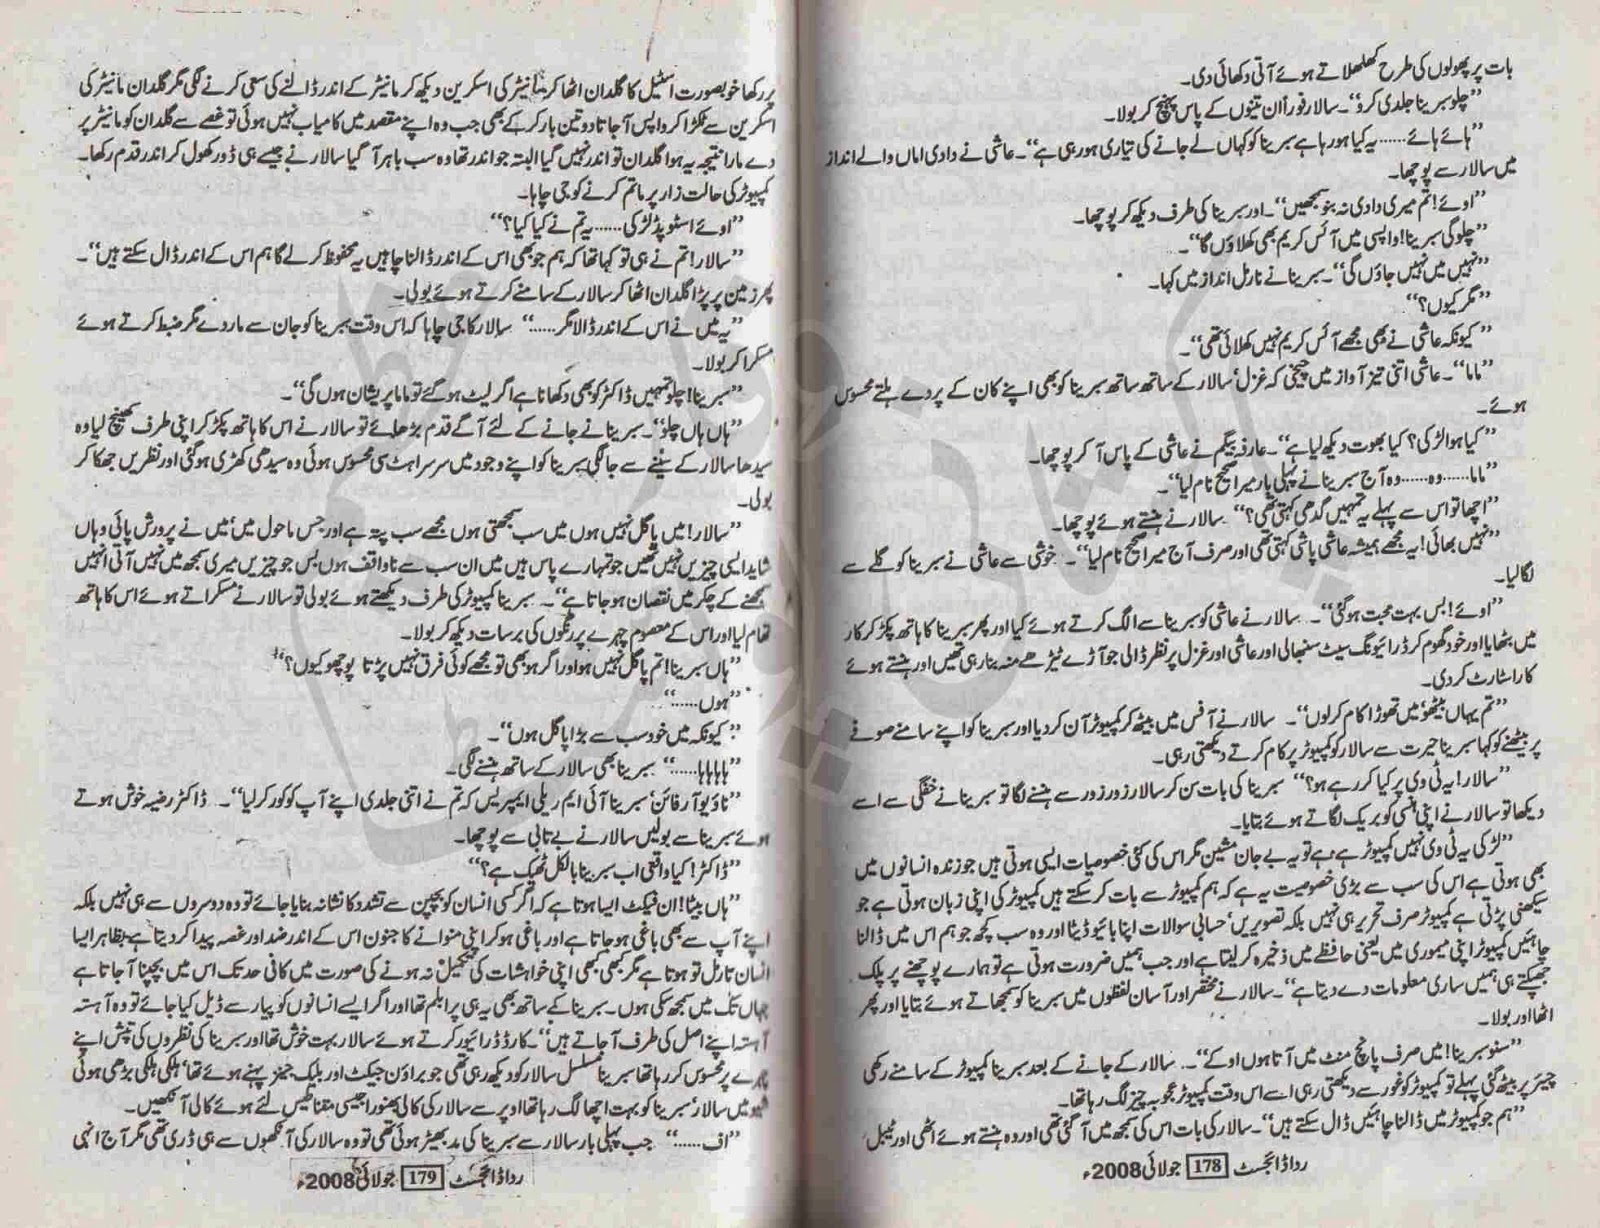 بات پر پھولوں کی طرح کھلکھلاتے ہوئے آتی دکھائی دی۔
”چلو سبرینا جلدی کرو“۔ سالار فوراً ان تینوں کے پاس پہنچ کر بولا۔
”ہائے ہائے...... یہ کیا ہو رہا ہے سبرینا کو کہاں لے جانے کی تیاری ہو رہی ہے“۔ عاشی نے دادی اماں والے انداز
میں سالار سے پوچھا۔
”اوئے! تم میری دادی نہ بنو سمجھیں“۔ اور سبرینا کی طرف دیکھ کر پوچھا۔
”چلو گی سبرینا! واپسی میں آئس کریم بھی کھلاؤں گا“۔
”نہیں میں نہیں جاؤں گی“۔ سبرینا نے نارمل انداز میں کہا۔
”مگر کیوں؟“
”کیونکہ عاشی نے بھی مجھے آئس کریم نہیں کھلائی تھی“۔
”ماما“۔ عاشی اتنی تیز آواز میں چیخی کہ غزل‘ سالار کے ساتھ ساتھ سبرینا کو بھی اپنے کان کے پردے ہلتے محسوس
ہوئے۔
”کیا ہوا لڑکی؟ کیا بھوت دیکھ لیا ہے“۔ عارفہ بیگم نے عاشی کے پاس آ کر پوچھا۔
”ماما...... وہ...... وہ آج سبرینا نے پہلی بار میرا صحیح نام لیا“۔
”اچھا تو اس سے پہلے یہ تمہیں گدھی کہتی تھی؟“ سالار نے ہنستے ہوئے پوچھا۔
”نہیں بھائی! یہ مجھے ہمیشہ عاشی پاشی کہتی تھی اور صرف آج میرا صحیح نام لیا“۔ خوشی سے عاشی نے سبرینا کو گلے سے
لگا لیا۔
”اوئے! بس بہت محبت ہو گئی“۔ سالار نے عاشی کو سبرینا سے الگ کرتے ہوئے کیا اور پھر سبرینا کا ہاتھ پکڑ کر کار
میں بٹھایا اور خود گھوم کر ڈرائیونگ سیٹ سنبھالی اور عاشی اور غزل پر نظر ڈالی جو آڑے ٹیڑھے منہ بنا رہی تھیں اور ہنستے ہوئے
کار اسٹارٹ کر دی۔
”تم یہاں بیٹھو‘ میں تھوڑا کام کر لوں“۔ سالار نے آفس میں بیٹھ کر کمپیوٹر آن کر دیا اور سبرینا کو اپنے سامنے صوفے
پر بیٹھنے کو کہا سبرینا حیرت سے سالار کو کمپیوٹر پر کام کرتے دیکھتی رہی۔
”سالار! یہ ٹی وی پر کیا کر رہے ہو؟“ سبرینا کی بات سن کر سالار زور زور سے ہنسنے لگا تو سبرینا نے خفگی سے اسے
دیکھا تو سالار نے اپنی ہنسی کو بریک لگاتے ہوئے بتایا۔
”لڑکی یہ ٹی وی نہیں کمپیوٹر ہے ہے تو یہ بے جان مشین مگر اس کی کئی خصوصیات ایسی ہوتی ہیں جو زندہ انسانوں میں
بھی ہوتی ہے اس کی سب سے بڑی خصوصیت یہ ہے کہ ہم کمپیوٹر سے بات کر سکتے ہیں کمپیوٹر کی اپنی زبان ہوتی ہے جو
سیکھنی پڑتی ہے کمپیوٹر صرف تحریر ہی نہیں بلکہ تصویریں‘ حسابی سوالات اپنا بائیو ڈیٹا اور وہ سب کچھ جو ہم اس میں ڈالنا
چاہیں کمپیوٹر اپنی میموری میں یعنی حافظے میں ذخیرہ کر لیتا ہے اور جب ہمیں ضرورت ہوتی ہے تو ہمارے پوچھنے پر پلک
جھپکتے ہی ہمیں ساری معلومات دے دیتا ہے“۔ سالار نے مختصر اور آسان لفظوں میں سبرینا کو سمجھاتے ہوئے بتایا اور پھر
اٹھا اور بولا۔
”سنو سبرینا! میں صرف پانچ منٹ میں آتا ہوں اوکے“۔ سالار کے جانے کے بعد سبرینا کمپیوٹر کے سامنے رکھی
چیئر پر بیٹھ گئی پہلے تو کمپیوٹر کو غور سے دیکھتی رہی اسے اس وقت کمپیوٹر عجوبہ چیز لگ رہا تھا۔
”ہم جو کمپیوٹر میں ڈالنا چاہیں ڈال سکتے ہیں“۔ سالار کی بات اس کی سمجھ میں آ گئی تھی اور وہ ہنستے ہوئے اٹھی اور ٹیبل
رداڈائجسٹ 178 جولائی 2008ء
پر رکھا خوبصورت اسٹیل کا گلدان اٹھا کر مانیٹر کی اسکرین دیکھ کر مانیٹر کے اندر ڈالنے کی سعی کرنے لگی مگر گلدان مانیٹر کی
اسکرین سے ٹکرا کر واپس آ جاتا دو تین بار کر کے بھی جب وہ اپنے مقصد میں کامیاب نہیں ہوئی تو غصے سے گلدان کو مانیٹر پر
دے مارا نتیجہ یہ ہوا گلدان تو اندر نہیں گیا البتہ جو اندر تھا وہ سب باہر آ گیا سالار نے جیسے ہی ڈور کھول کر اندر قدم رکھا۔
کمپیوٹر کی حالت زار پر ماتم کرنے کو جی چاہا۔
”اوئے اسٹوپڈ لڑکی...... یہ تم نے کیا کیا؟“
”سالار! تم نے ہی تو کہا تھا کہ ہم جو بھی اس کے اندر ڈالنا چاہیں یہ محفوظ کر لے گا ہم اس کے اندر ڈال سکتے ہیں“۔
پھر زمین پر پڑا گلدان اٹھا کر سالار کے سامنے کرتے ہوئے بولی۔
”یہ میں نے اس کے اندر ڈالا مگر......“ سالار کا جی چاہا کہ اس وقت سبرینا کو جان سے مار دے مگر ضبط کرتے ہوئے
مسکرا کر بولا۔
”سبرینا! چلو تمہیں ڈاکٹر کو بھی دکھانا ہے اگر لیٹ ہو گئے تو ماما پریشان ہوں گی“۔
”ہاں ہاں چلو“۔ سبرینا نے جانے کے لئے آگے قدم بڑھائے تو سالار نے اس کا ہاتھ پکڑ کر اپنی طرف کھینچ لیا وہ
سیدھا سالار کے سینے سے جا لگی سبرینا کو اپنے وجود میں سرسراہٹ سی محسوس ہوئی وہ سیدھی کھڑی ہو گئی اور نظریں جھکا کر
بولی۔
”سالار! میں پاگل نہیں ہوں میں سب سمجھتی ہوں مجھے سب پتہ ہے اور جس ماحول میں‘ میں نے پرورش پائی وہاں
شاید ایسی چیزیں نہیں تھیں جو تمہارے پاس ہیں میں ان سب سے ناواقف ہوں بس جو چیزیں میری سمجھ میں نہیں آتی انہیں
سمجھنے کے چکر میں نقصان ہو جاتا ہے“۔ سبرینا کمپیوٹر کی طرف دیکھتے ہوئے بولی تو سالار نے مسکراتے ہوئے اس کا ہاتھ
تھام لیا اور اس کے معصوم چہرے پر رنگوں کی برسات دیکھ کر بولا۔
”ہاں سبرینا! تم پاگل نہیں ہو اور اگر ہو بھی تو مجھے کوئی فرق نہیں پڑتا پوچھو کیوں؟“
”ہوں......“
”کیونکہ میں خود سب سے بڑا پاگل ہوں“۔
”ہاہاہا......“ سبرینا بھی سالار کے ساتھ ہنسنے لگی۔
”ناؤ یو آر فائن‘ سبرینا آئی ایم ریلی ایمپریس کہ تم نے اتنی جلدی اپنے آپ کو کور کر لیا“۔ ڈاکٹر رضیہ خوش ہوتے
ہوئے سبرینا سے بولیں سالار نے بے تابی سے پوچھا۔
”ڈاکٹر! کیا واقعی اب سبرینا بالکل ٹھیک ہے؟“
”ہاں بیٹا! ان فیکٹ ایسا ہوتا ہے کہ اگر کسی انسان کو بچپن سے تشدد کا نشانہ بنایا جائے تو وہ دوسروں سے ہی نہیں بلکہ
اپنے آپ سے بھی باغی ہو جاتا ہے اور باغی ہو کر اپنی منوانے کا جنون اس کے اندر ضد اور غصہ پیدا کر دیتا ہے بظاہر ایسا
انسان نارمل تو ہوتا ہے مگر کبھی کبھی اپنی خواہشات کی تکمیل نہ ہونے کی صورت میں کافی حد تک اس میں بچپنا آ جاتا ہے
جہاں تک میں سمجھ سکی ہوں۔ سبرینا کے ساتھ بھی یہ ہی پرابلم تھا اور اگر ایسے انسانوں کو پیار سے ڈیل کیا جائے تو وہ آہستہ
آہستہ اپنے اصل کی طرف آ جاتے ہیں“۔ کار ڈرائیو کرتے ہوئے سالار بہت خوش تھا اور سبرینا کی نظروں کی تپش اپنے
چہرے پر محسوس کر رہا تھا سبرینا مسلسل سالار کو دیکھ رہی تھی جو براؤن جیکٹ اور بلیک جینز پہنے ہوئے تھا‘ ہلکی ہلکی بڑھی ہوئی
شیو میں سالار‘ سبرینا کو بہت اچھا لگ رہا تھا اوپر سے سالار کی کالی بھنورا جیسی مقناطیس لئے ہوئے کالی آنکھیں۔
”اف......“ جب پہلی بار سالار سے سبرینا کی مڈبھیڑ ہوئی تھی تو وہ سالار کی آنکھوں سے ہی ڈری تھی مگر آج انہی
رداڈائجسٹ 179 جولائی 2008ء